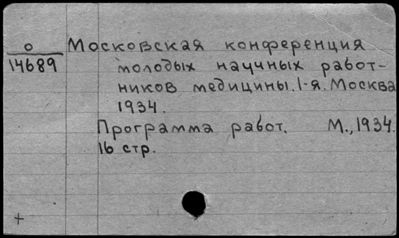 о Московская конференция
14689 молодых научных работ-
ников медицины. 1-я. Москва
1934.
Программа работ. М., 1934.
16 стр.
+